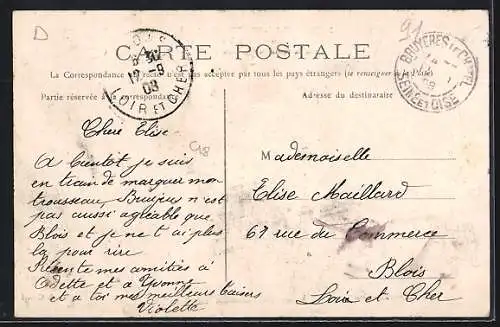 D
91
CARTE POSTALE
La Correspondance au recto n'est pas acceptée par tous les pays étrangers (se renseigner à la Poste)
Partie réservée à la correspondance
Adresse du destinataire
BLOIS
8 30
12-9
08
LOIR ET CHER
BRUYERES LE CHATEL
08
SEINE ET OISE
Chère Elise
C18
A bientôt je suis
en train de marquer mon
trousseau, Bruyères n'est
pas aussi agréable que
Blois et je ne t'ai plus
là pour rire
Présente mes amitiés à
Odette et à Yvonne
et à toi mes meilleurs baisers
Violette
Mademoiselle
Elise Maillard
67 rue du Commerce
Blois
Loir et Cher